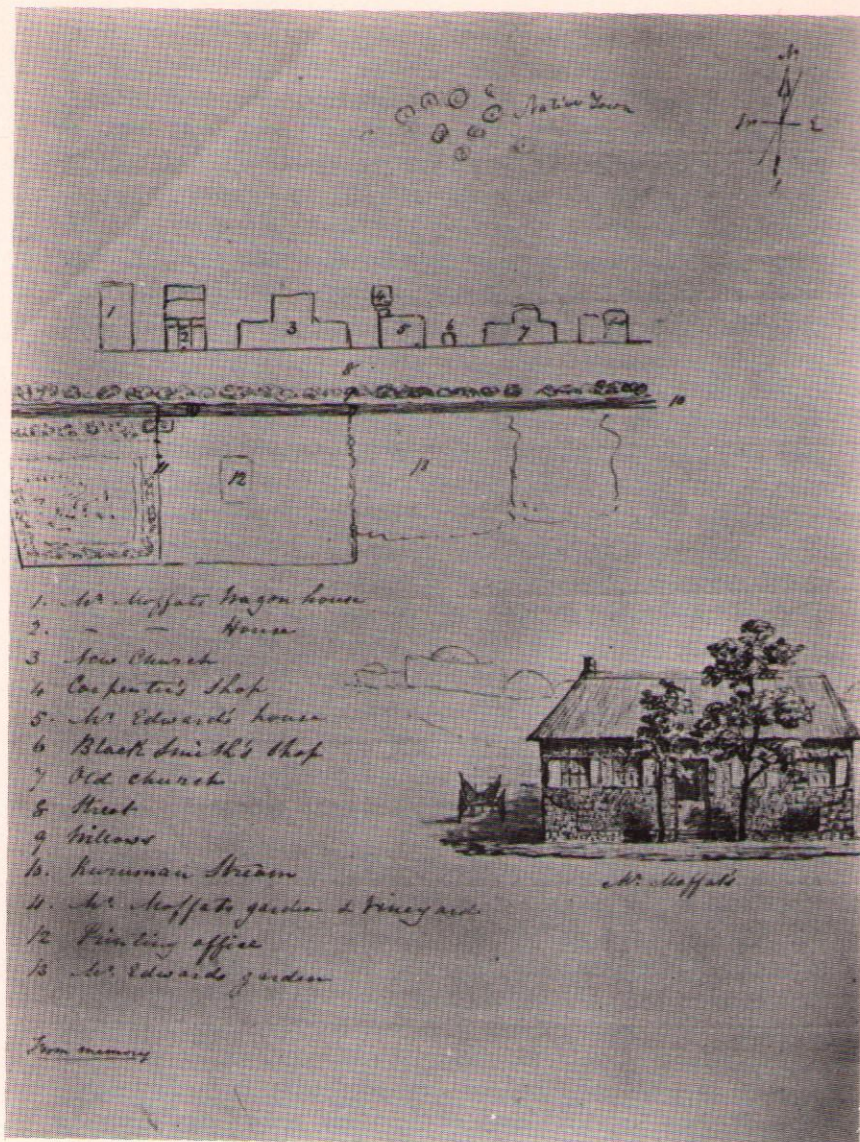 Native Town
N
W E
S
1 2 3 4 5 6 7
8
9
10
11 12 13
1. Mr Moffats Wagon house
2. - - House
3 New Church
4 Carpenter's Shop
5. Mr Edward's house
6 Black Smith's Shop
7 Old church
8 Street
9 Willows
10. Kuruman Stream
11. Mr Moffats garden & Vineyard
12 Printing office
13 Mr Edwards garden
Mr Moffat's
From memory